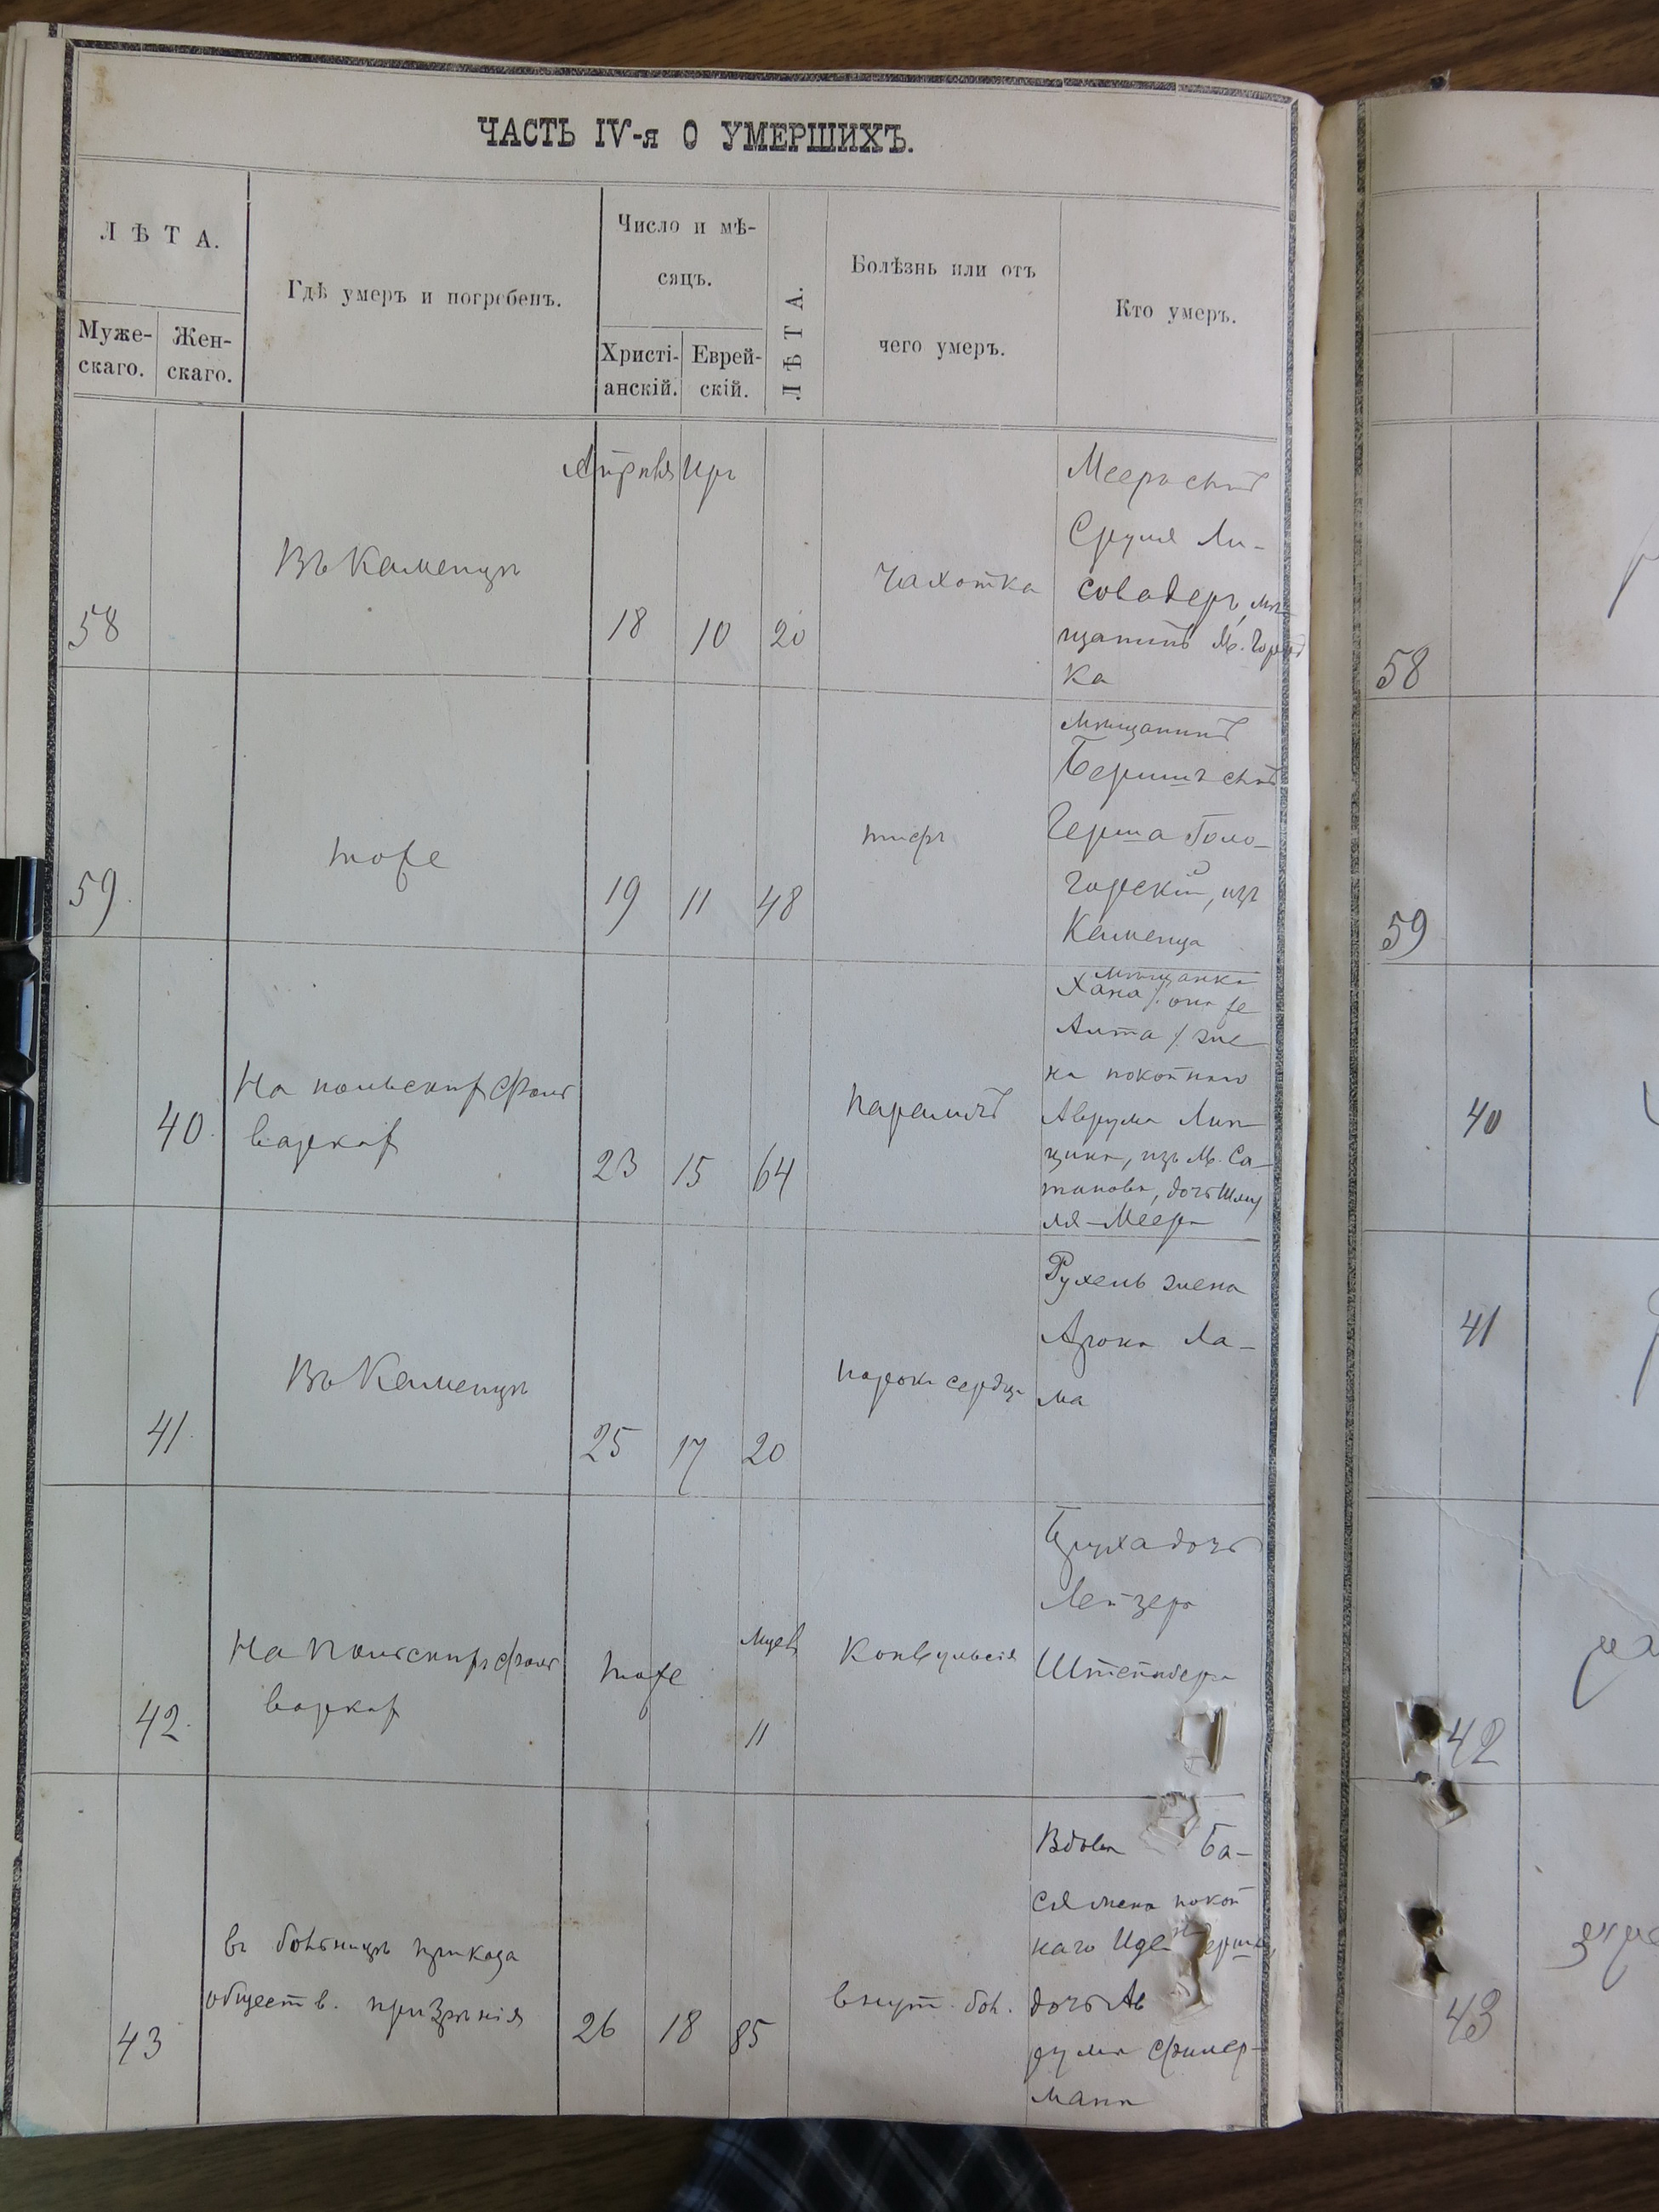 ЧАСТЬ IV-я О УМЕРШИХЪ.
ЛѢТА.
Муже-
скаго.
Жен-
скаго.
Гдѣ умеръ и погребенъ.
Число и мѣ-
сяцъ.
Христі-
анскій.
Еврей-
скій.
ЛѢТА.
Болѣзнь или отъ
чего умеръ.
Кто умеръ.
58
Въ Каменцѣ
Апрѣля Иръ
18
10
20
Чахотка
Мееръ сынъ
Сруля Ли-
соводеръ, мѣ-
щанинъ м. Город
ка
59
тоже
19
11
48
тифъ
мѣщанинъ
Беришъ сынъ
Герша Голо-
горскій, изъ
Каменца
40
На польских фоль
варках
23
15
64
параличъ
мѣщанка
Хана /она же
Аита/ же
на покойнаго
Аврума Лип
цина, изъ м. Са-
танова, дочь Шму
ля-Меера
41
Въ Каменцѣ
25
17
20
порокъ сердца
Рухель жена
Арона Ла-
ма
42
На польскихъ фоль
варках
тоже
мѣсяцев
11
Конвульсія
Бруха дочь
Лейзера
Штейнбера
43
въ больницѣ приказа
обществ. призрѣнія
26
18
85
внут. бол.
Вдова Ба-
ся жена покой
наго
дочь Ав
рума Фишер-
мана
58
59
40
41
42
43